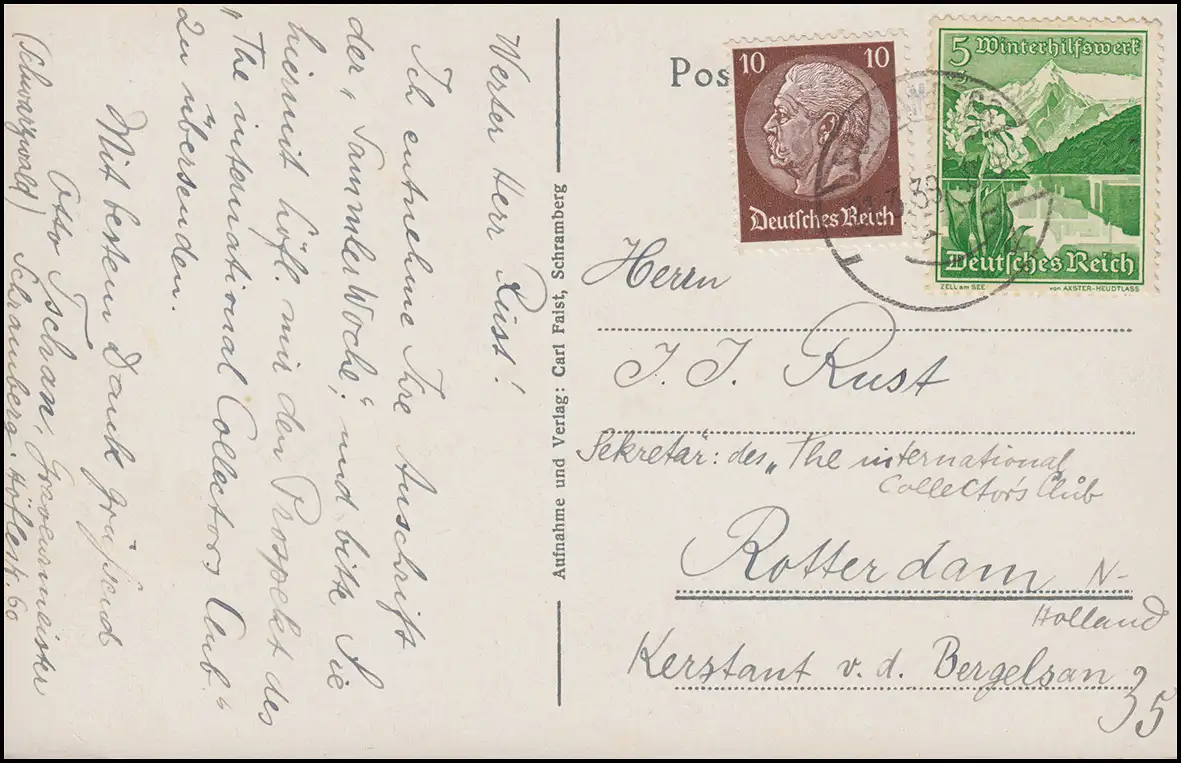 Werter Herr Rüst!
Ich entnehme Ihre Anschrift
der „Sammlerwoche“, und bitte Sie
hiermit höfl. mir den Prospekt des
„The international Collectors Club“
zu übersenden.
Mit bestem Dank grüßend
Otto Tschan, Graveurmeister
(Schwarzwald) Schramberg.
60
Aufnahme und Verlag: Carl Faist, Schramberg
Pos
10 10
Deutsches Reich
5 Winterhilfswerk
Deutsches Reich
ZELL am SEE von AXSTER-HEUDTLASS
39
Herrn
J. J. Rust
Sekretär: des „The international
Collector's Club
Rotterdam N-
Holland
Kerstant v. d. Bergelsan
35